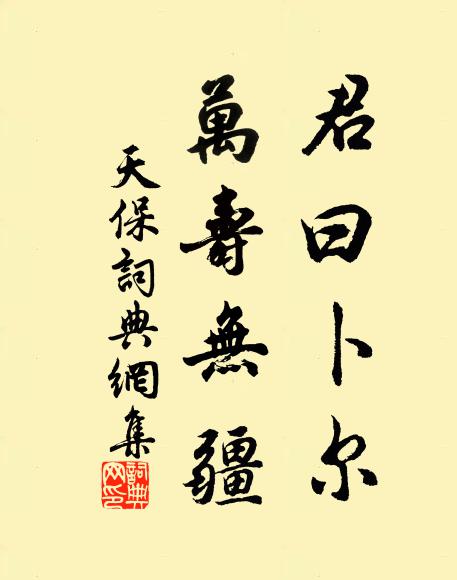 君曰卜尔
萬壽無疆
天保詞典網集
詞典网印